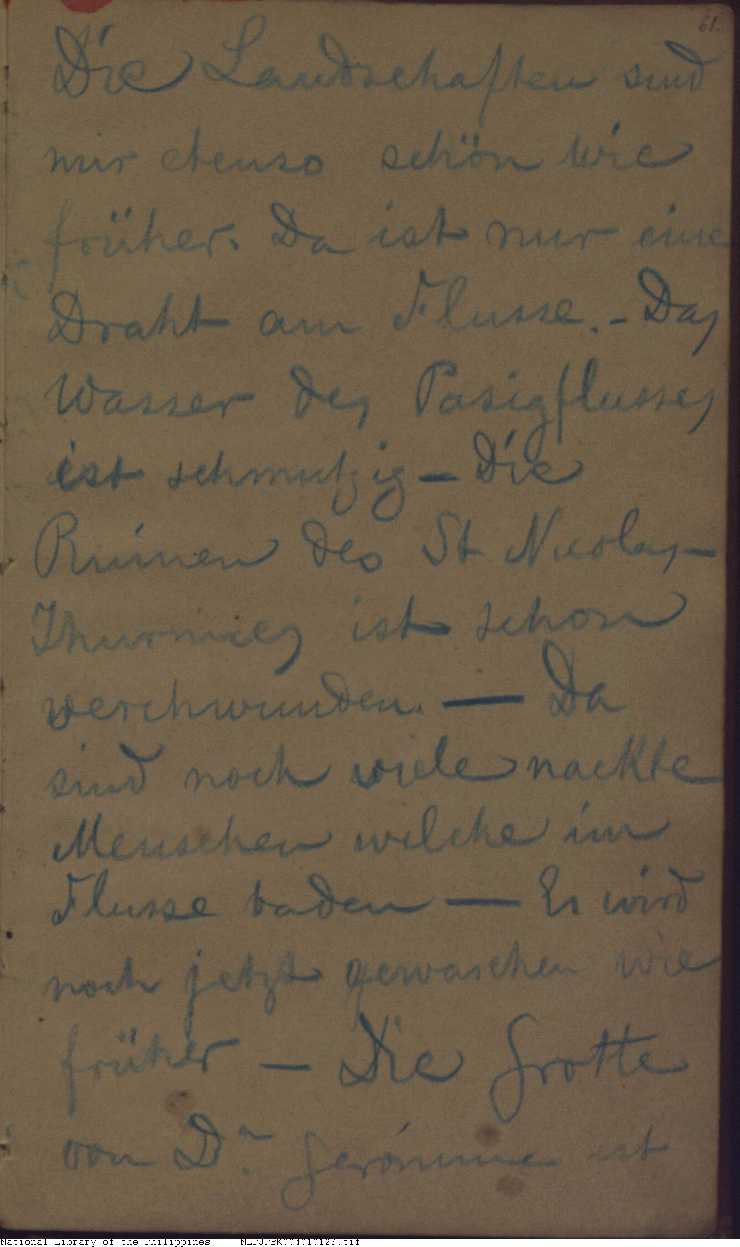 61.
Die Landschaften sind
mir ebenso schön wie
früher. Da ist nur eine
Draht am Flusse. - Das
Wasser des Pasigflusses
ist schmutzig — Die
Ruinen des St Nicolas-
Thurmes ist schon
verchwunden. — Da
sind noch viele nackte
Menschen welche im
Flusse baden — Es wird
noch jetzt gewaschen wie
früher — Die Grotte
von Dª Gerónima ist
National Library of the Philippines